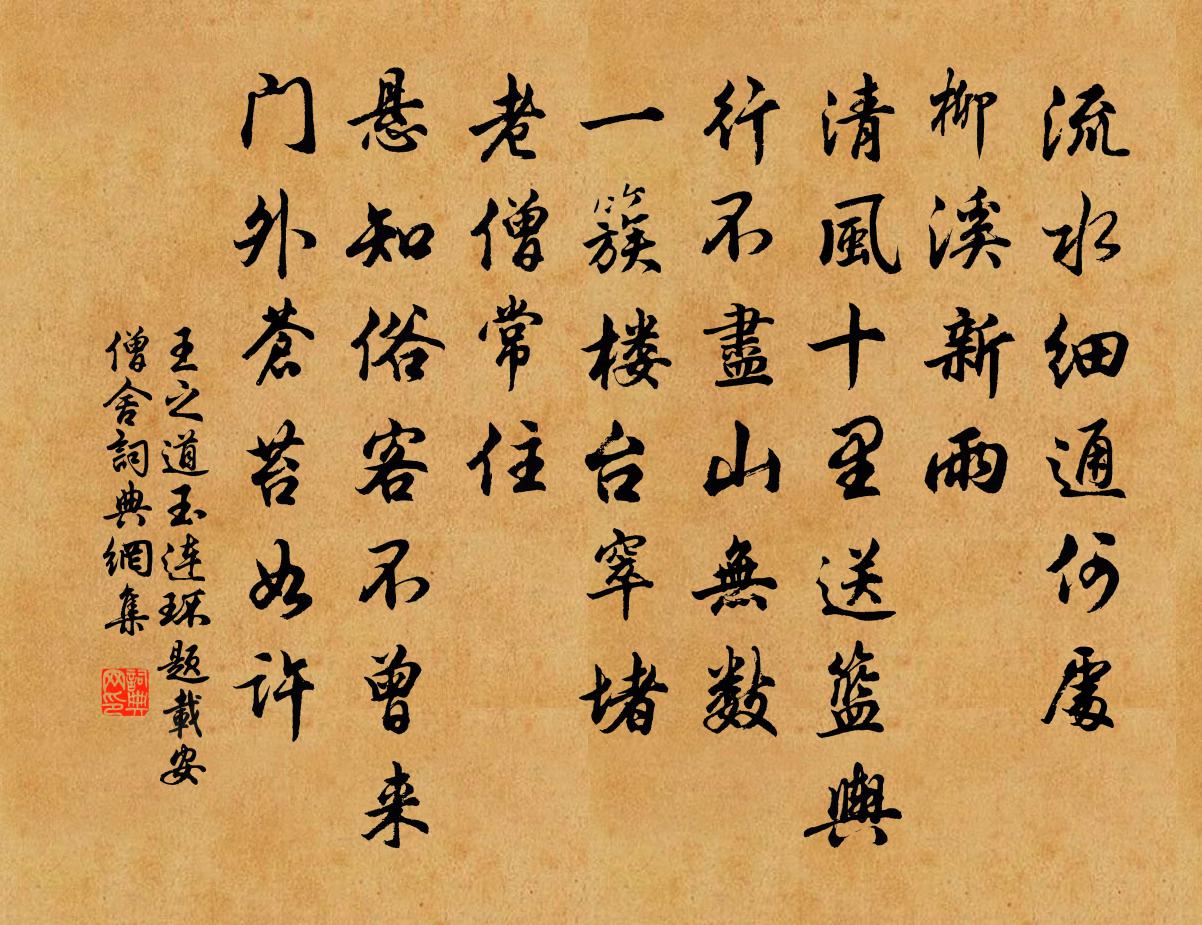 流水细通何處
柳溪新雨
清風十里送籃輿
行不盡山無數
一簇楼台窣堵
老僧常住
悬知俗客不曾来
门外蒼苔如许
王之道玉连环题載安
僧舍詞典網集
詞典网印